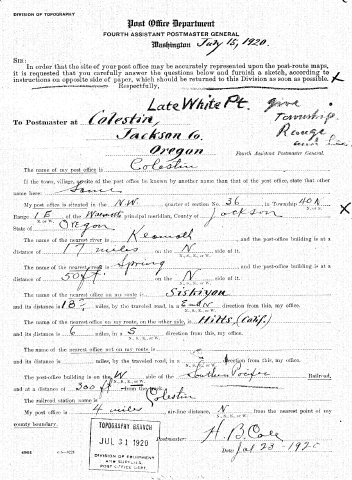 DIVISION OF TOPOGRAPHY
Post Office Department
FOURTH ASSISTANT POSTMASTER GENERAL
Washington July 15, 1920.
SIR:
In order that the site of your post office may be accurately represented upon the post-route maps,
it is requested that you carefully answer the questions below and furnish a sketch, according to
instructions on opposite side of paper, which should be returned to this Division as soon as possible. X
Late White Pt. give
Township
Range
To Postmaster at Colestin,
Jackson Co.
Oregon
Fourth Assistant Postmaster General.
The name of my post office is Colestin
If the town, village, or site of the post office be known by another name than that of the post office, state that
name here: Same
My post office is situated in the N.W. quarter of section No. 36 in Township 40 N X
Range 1 E of the principal meridian, County of Jackson
State of Oregon
The name of the nearest river is and the post-office building is at a
distance of 17 miles on the N side of it.
The name of the nearest creek is Spring and the post-office building is at a
distance of 50 ft. on the N side of it.
The name of the nearest office on my route is Siskiyou
and its distance is miles, by the traveled road, in a direction from this, my office.
The name of the nearest office on my route, on the other side, is Hilts, (Calif.)
and its distance is 6 miles, in a S direction from this, my office.
The name of the nearest office not on my route is
and its distance is miles, by the traveled road, in a direction from this, my office.
The post-office building is on the W side of the Southern Pacific Railroad,
and at a distance of 300 ft from the track.
The railroad station name is Colestin
My post office is 4 miles air-line distance, N from the nearest point of my
county boundary.
Postmaster: H. B. Cole
Date: Jul 23-1920
TOPOGRAPHY BRANCH
JUL 31 1920
DIVISION OF EQUIPMENT
AND SUPPLIES
POST OFFICE DEPT.